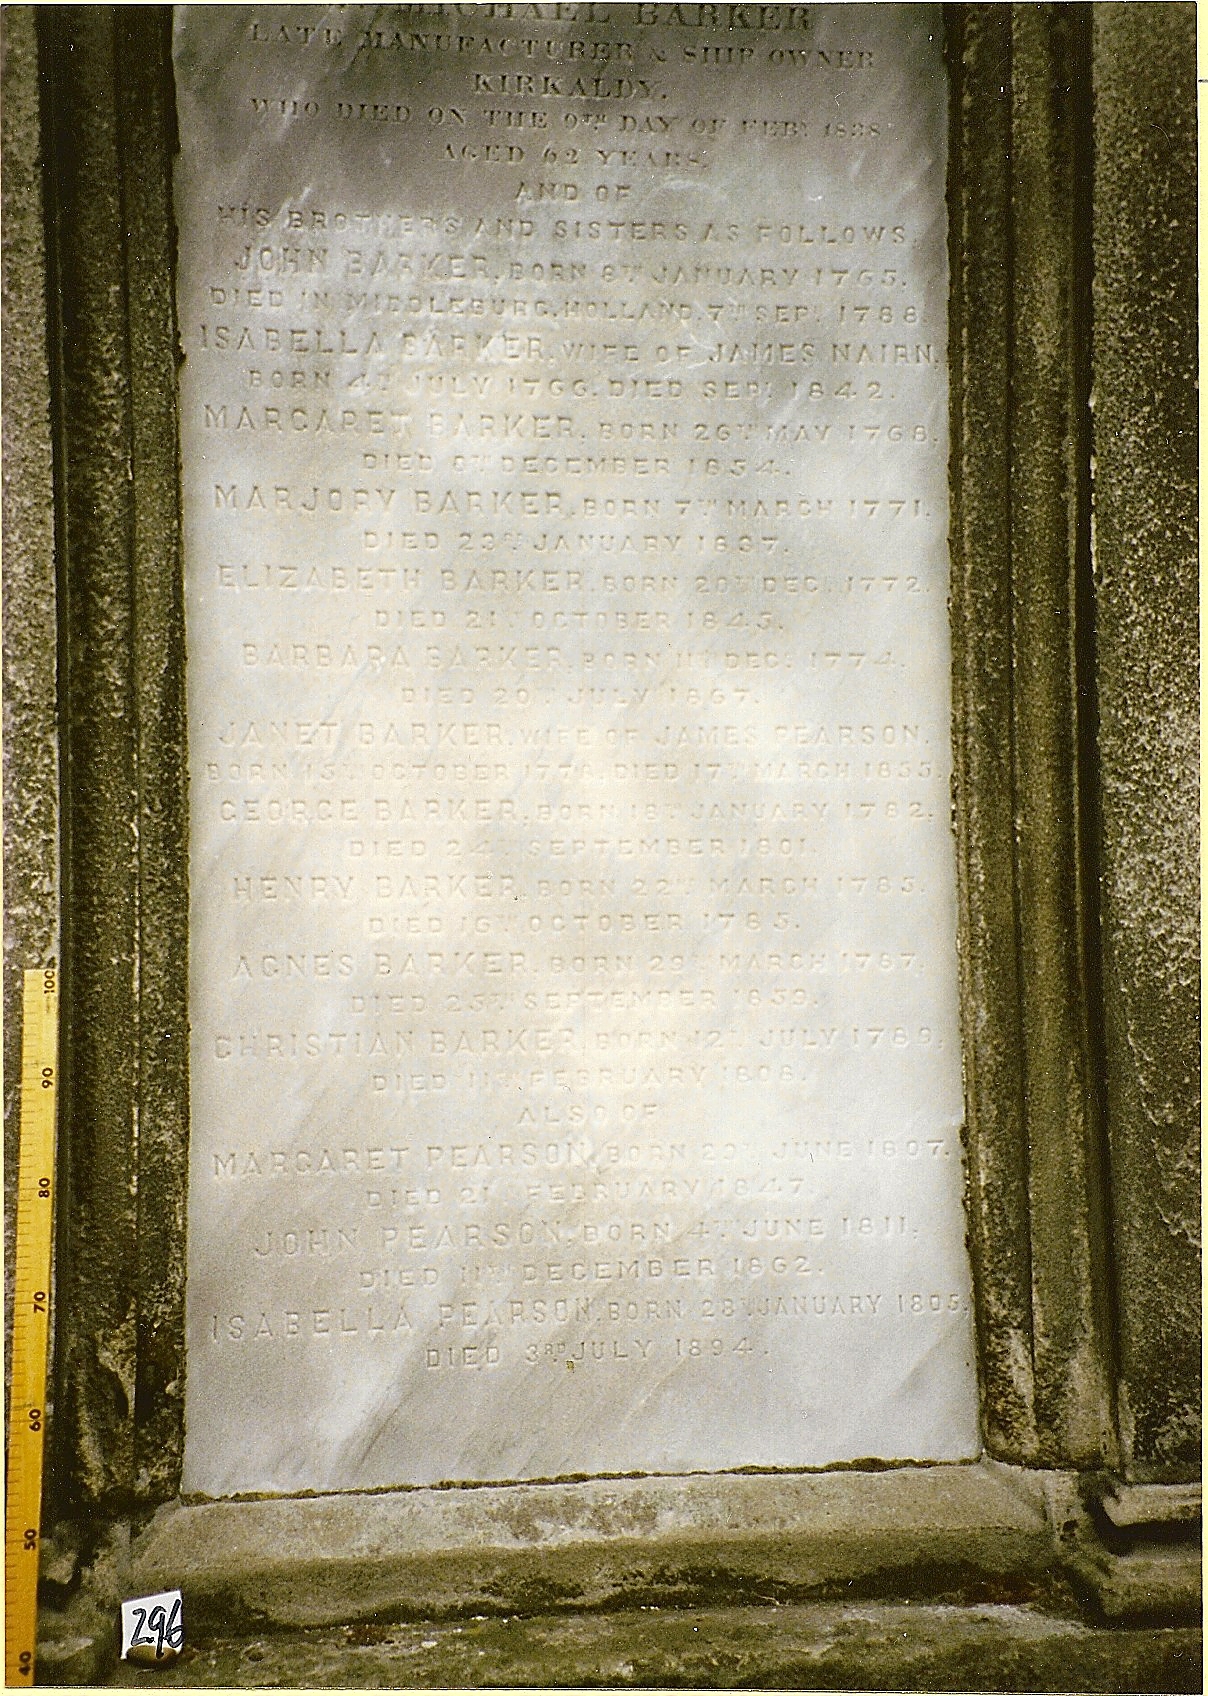 MICHAEL BARKER
LATE MANUFACTURER & SHIP OWNER
KIRKALDY.
WHO DIED ON THE 9TH DAY OF FEBY 1838
AGED 62 YEARS.
AND OF
HIS BROTHERS AND SISTERS AS FOLLOWS.
JOHN BARKER, BORN 8TH JANUARY 1765.
DIED IN MIDDLEBURG, HOLLAND, 7TH SEPT 1788.
ISABELLA BARKER, WIFE OF JAMES NAIRN.
BORN 4TH JULY 1766. DIED SEPT 1842.
MARGARET BARKER, BORN 26TH MAY 1768.
DIED DECEMBER 1854.
MARJORY BARKER, BORN 7TH MARCH 1771.
DIED 23RD JANUARY 1837.
ELIZABETH BARKER, BORN 20TH DEC. 1772.
DIED 21ST OCTOBER 1845.
BARBARA BARKER, BORN 11TH DECR 1774.
DIED 20TH JULY 1867.
JANET BARKER, WIFE OF JAMES PEARSON.
BORN 15TH OCTOBER 1779, DIED 17TH MARCH 1855.
GEORGE BARKER, BORN 18TH JANUARY 1782.
DIED 24TH SEPTEMBER 1801.
HENRY BARKER, BORN 22ND MARCH 1785.
DIED 16TH OCTOBER 1785.
AGNES BARKER, BORN 29TH MARCH 1787.
DIED 25TH SEPTEMBER 1859.
CHRISTIAN BARKER, BORN 12TH JULY 1789.
DIED 11TH FEBRUARY 1808.
ALSO OF
MARGARET PEARSON, BORN 29TH JUNE 1807.
DIED 21ST FEBRUARY 1847.
JOHN PEARSON, BORN 4TH JUNE 1811.
DIED 11TH DECEMBER 1862.
ISABELLA PEARSON, BORN 28TH JANUARY 1805.
DIED 3RD JULY 1894.
100
90
80
70
60
50
40
296